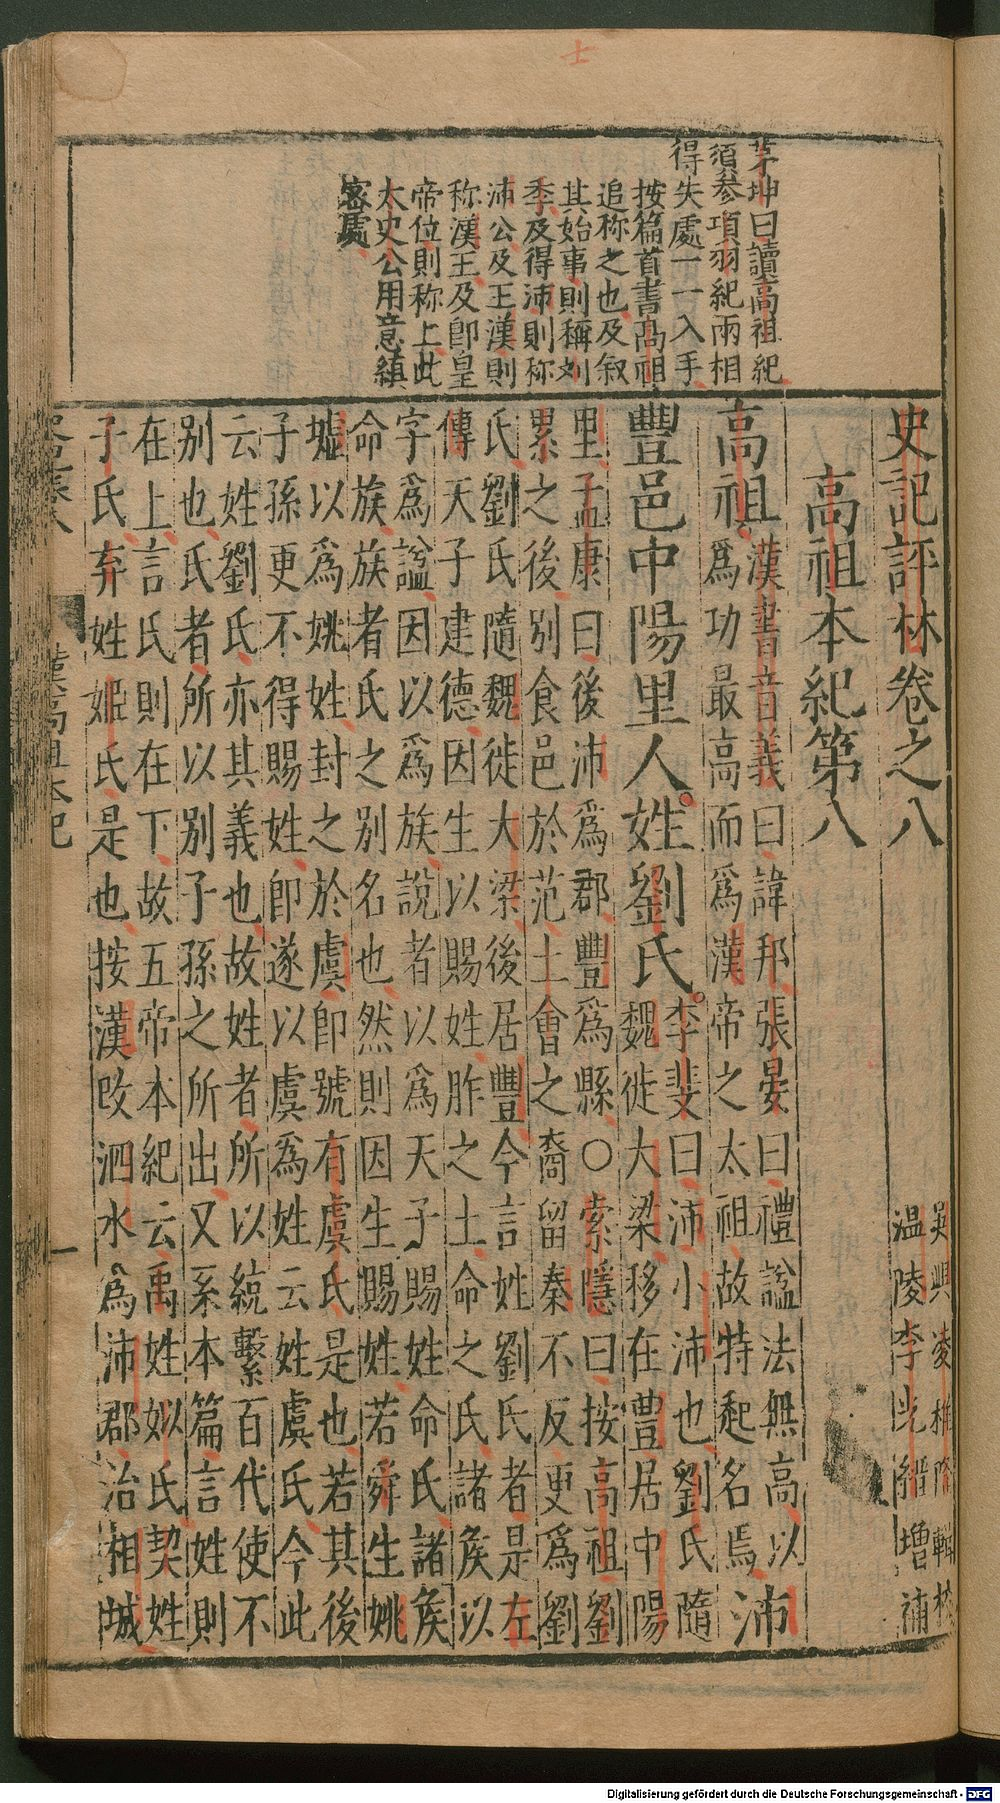 士
茅坤曰讀高祖紀
須參項羽紀兩相
得失處一一入手
按篇首書高祖
追称之也及叙
其始事則稱刘
季及得沛則称
沛公及王漢則
称漢王及卽皇
帝位則称上此
太史公用意縝
密處
史記評林卷之八
吳興凌稚隆輯校
温陵李光縉增補
高祖本紀第八
高祖漢書音義曰諱邦張晏曰禮諡法無高以
爲功最高而爲漢帝之太祖故特起名焉沛
豐邑中陽里人姓劉氏李斐曰沛小沛也劉氏隨
魏徙大梁移在豐居中陽
里孟康曰後沛爲郡豐爲縣○索隱曰按高祖劉
累之後别食邑於范士會之裔留秦不反更爲劉
氏劉氏隨魏徙大梁後居豐今言姓劉氏者是左
傳天子建德因生以賜姓胙之土命之氏諸矦以
字爲諡因以爲族說者以爲天子賜姓命氏諸矦
命族族者氏之别名也然則因生賜姓若舜生姚
墟以爲姚姓封之於虞卽號有虞氏是也若其後
子孫更不得賜姓卽遂以虞爲姓云姓虞氏今此
云姓劉氏亦其義也故姓者所以統繫百代使不
别也氏者所以别子孫之所出又系本篇言姓則
在上言氏則在下故五帝本紀云禹姓姒氏契姓
子氏弃姓姬氏是也按漢改泗水爲沛郡治相城
漢高祖本紀
一
Digitalisierung gefördert durch die Deutsche Forschungsgemeinschaft - DFG